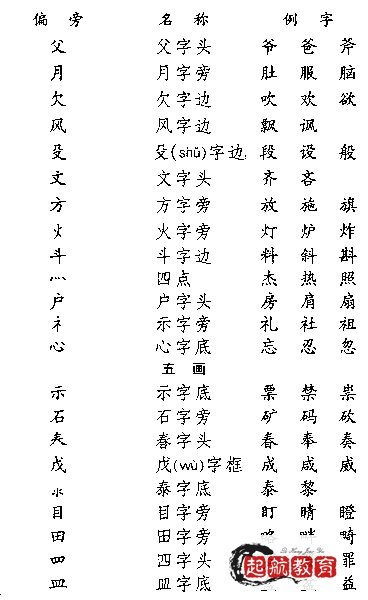 偏旁 名称 例字
父 父字头 爷 爸 斧
月 月字旁 肚 服 脑
欠 欠字边 吹 欢 欲
风 风字边 飘 讽
殳 殳(shū)字边 段 设 般
文 文字头 齐 吝
方 方字旁 放 施 旗
火 火字旁 灯 炉 炸
斗 斗字边 料 斜 斟
灬 四点 杰 热 照
户 户字头 房 肩 扇
礻 示字旁 礼 社 祖
心 心字底 忘 忍 忽
五画
示 示字底 票 禁 祟
石 石字旁 矿 码 砍
𡗗 春字头 春 奉 奏
戊 戊(wù)字框 成 咸 威
氺 泰字底 泰 黎
目 目字旁 盯 睛 瞪
田 田字旁 略 畔 畸
罒 四字头 罪
皿 皿字底 益
起航教育